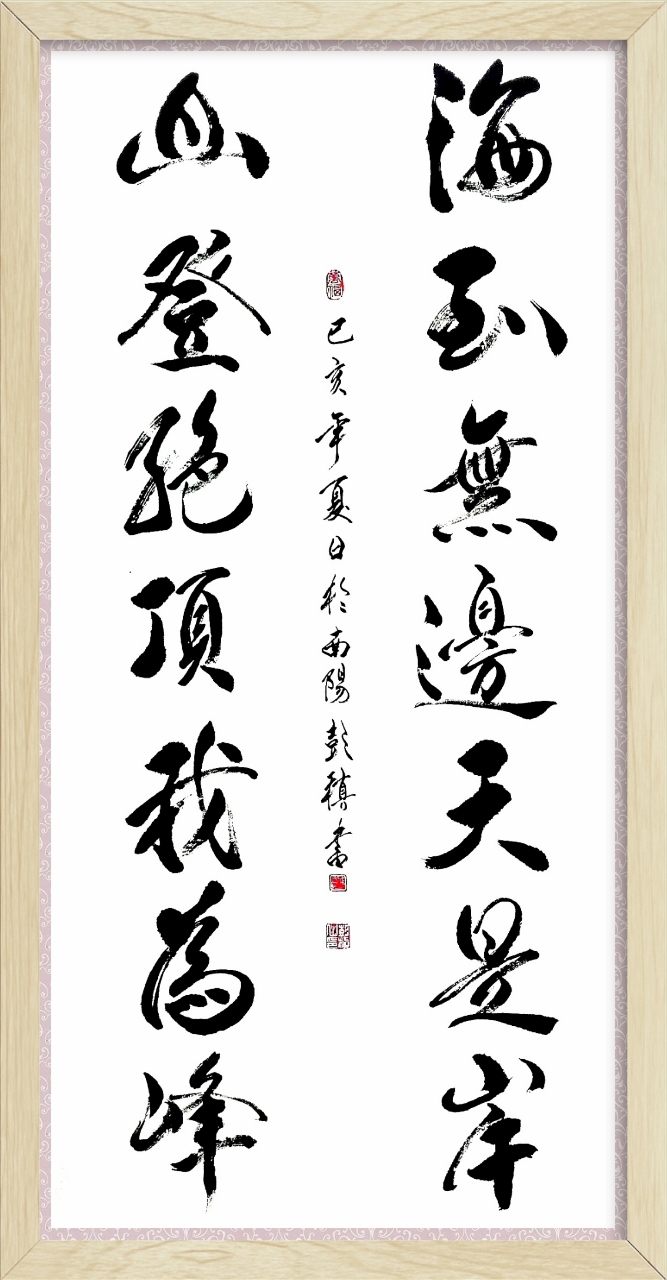 海到無邊天是岸
山登絶頂我為峰
己亥年夏日於南陽彭鎮書